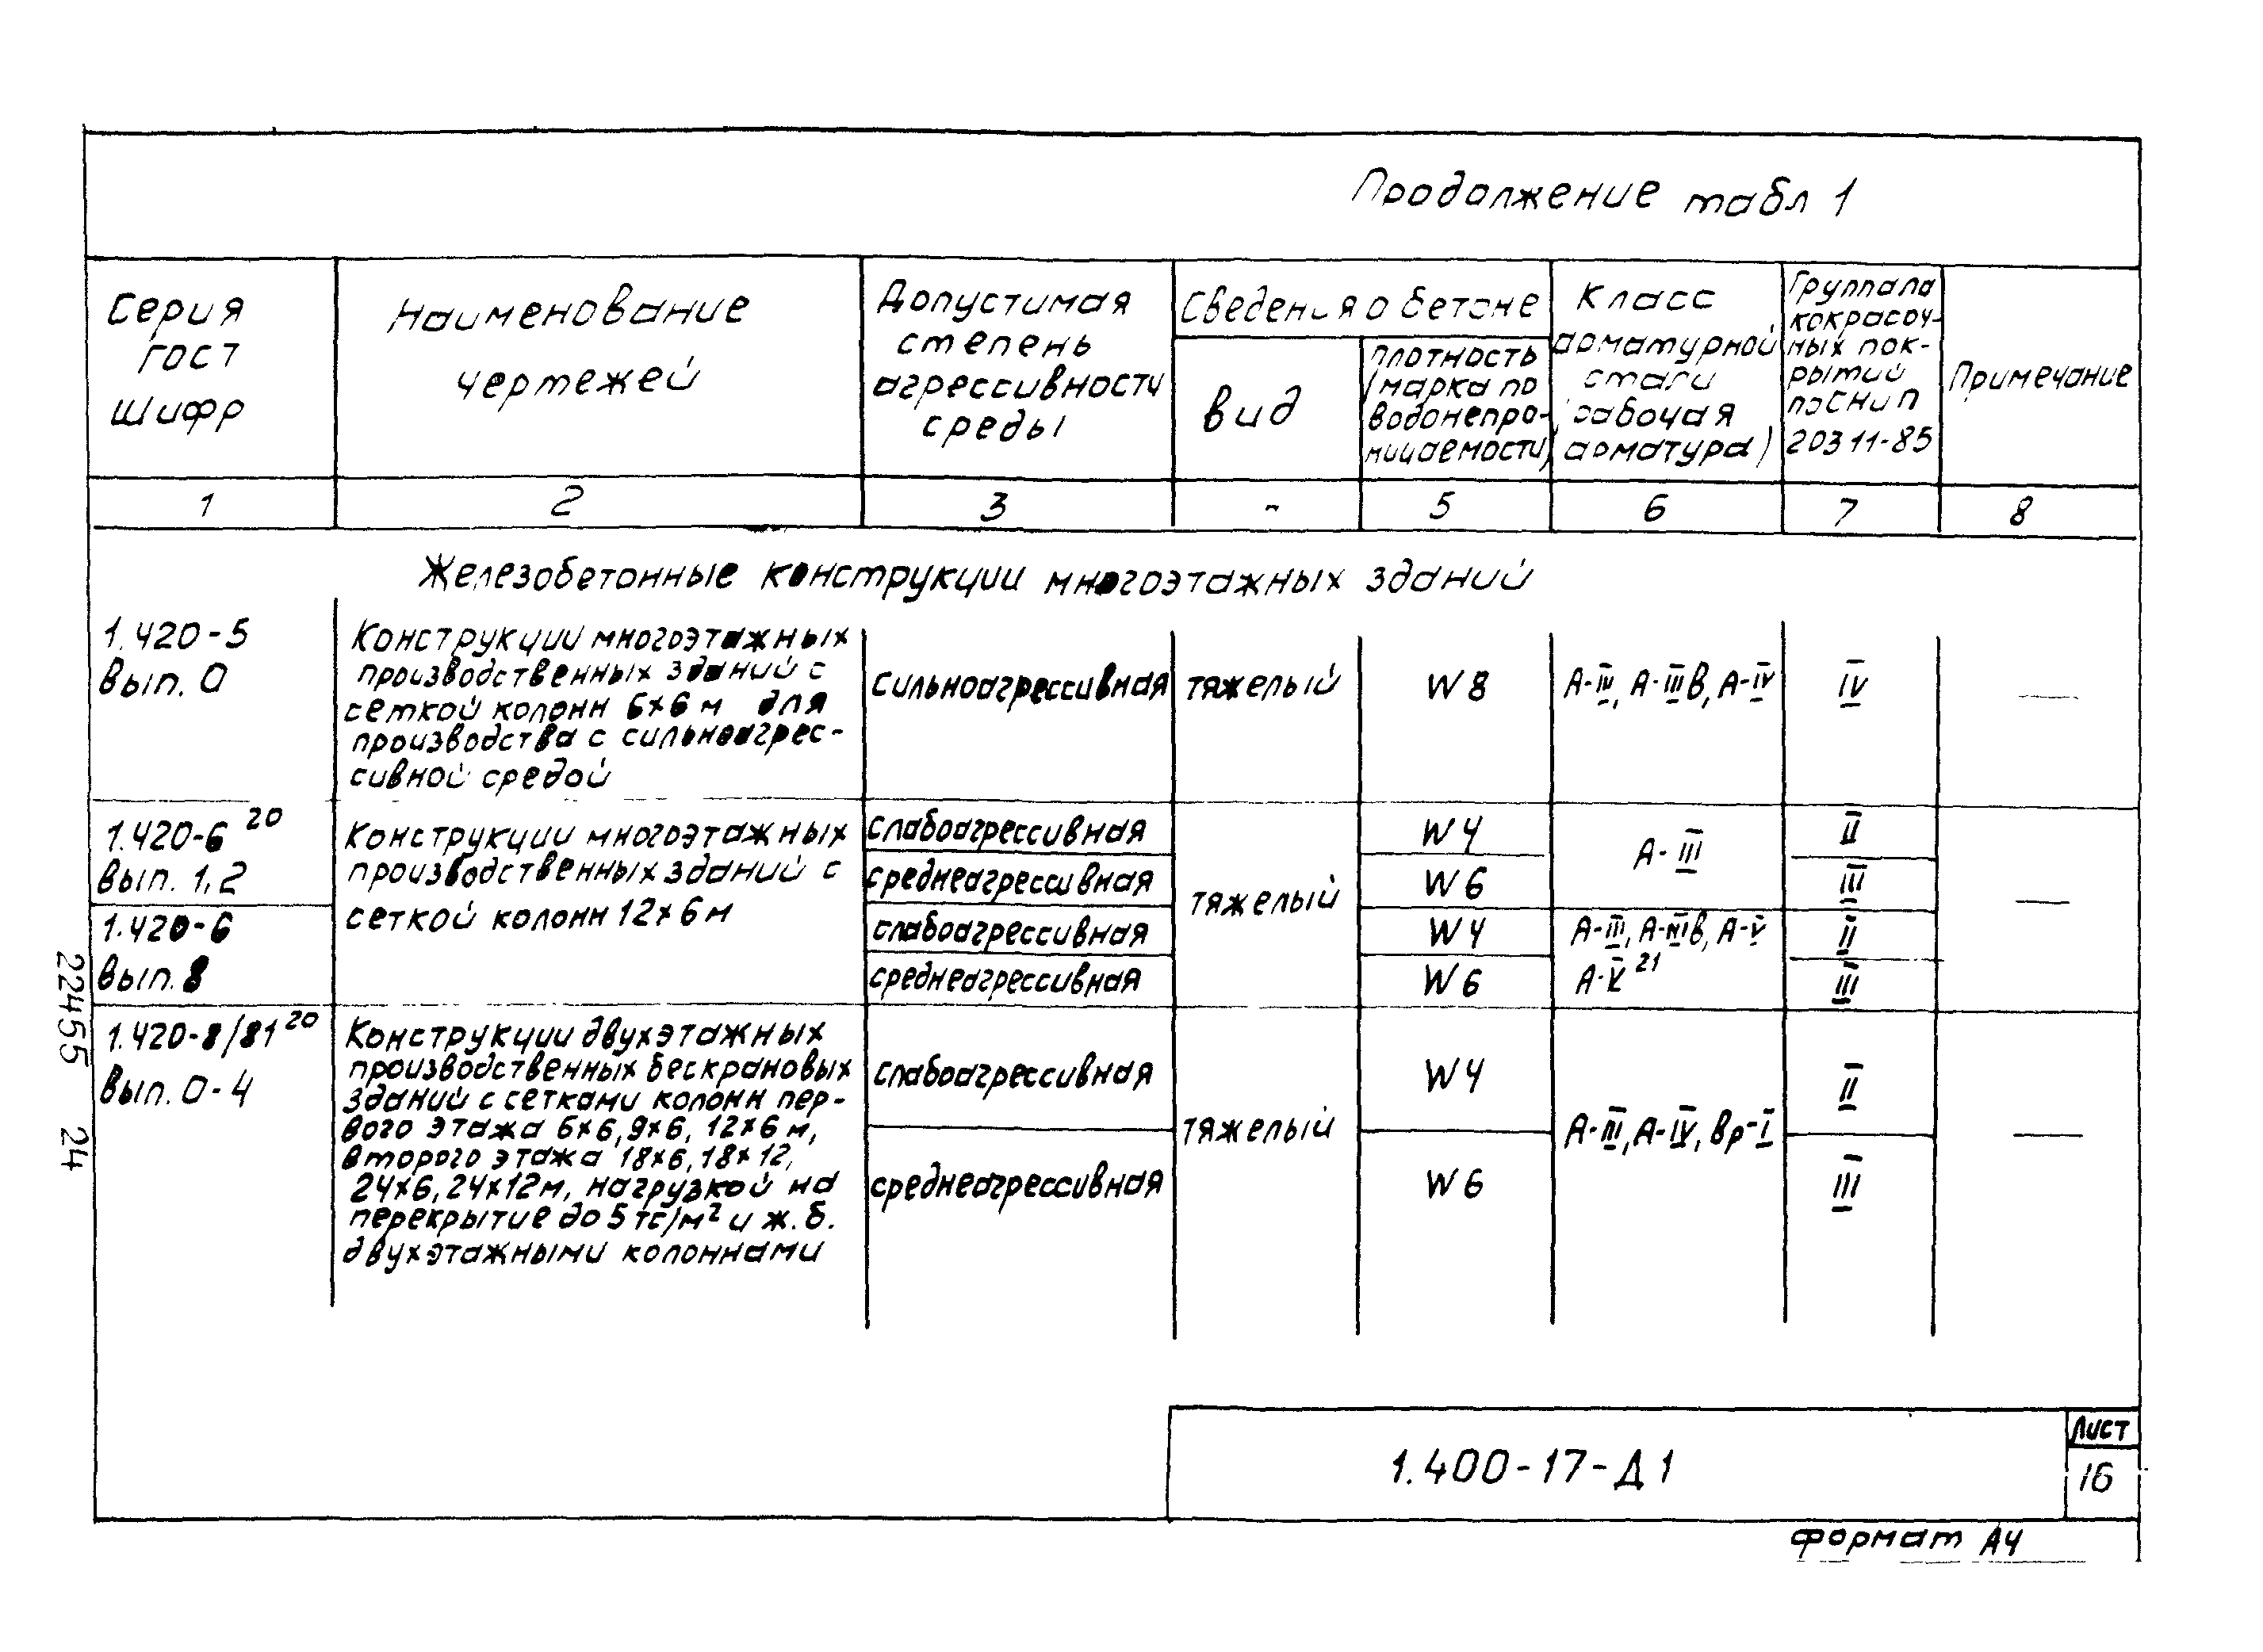 Продолжение табл 1
Серия
ГОСТ
Шифр
Наименование
чертежей
Допустимая
степень
агрессивности
среды
Сведения о бетоне
вид
плотность
(марка по
водонепро-
ницаемости)
Класс
арматурной
стали
(рабочая
арматура)
Группа ла
кокрасоч-
ных пок-
рытий
по СНиП
20311-85
Примечание
1 2 3 - 5 6 7 8
Железобетонные конструкции многоэтажных зданий
1.420-5
Вып. 0
Конструкции многоэтажных
производственных зданий с
сеткой колонн 6×6 м для
производства с сильноагрес-
сивной средой
сильноагрессивная
тяжелый
W8
А-IV, А-IIIв, А-IV
IV
—
1.420-6 20
Вып. 1,2
1.420-6
Вып. 8
Конструкции многоэтажных
производственных зданий с
сеткой колонн 12×6 м
слабоагрессивная
среднеагрессивная
слабоагрессивная
среднеагрессивная
тяжелый
W4
W6
W4
W6
А-III
А-III, А-IIIв, А-V
А-V 21
II
III
II
III
—
1.420-8/81 20
Вып. 0-4
Конструкции двухэтажных
производственных бескрановых
зданий с сетками колонн пер-
вого этажа 6×6, 9×6, 12×6 м,
второго этажа 18×6, 18×12,
24×6, 24×12м, нагрузкой на
перекрытие до 5 тс/м² и ж.б.
двухэтажными колоннами
слабоагрессивная
среднеагрессивная
тяжелый
W4
W6
А-III, А-IV, Вр-I
II
III
—
22455 24
1.400-17-Д1
Лист
16
формат А4